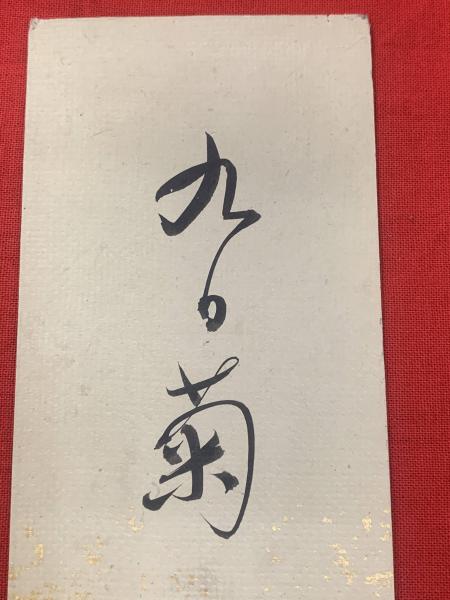 九日菊